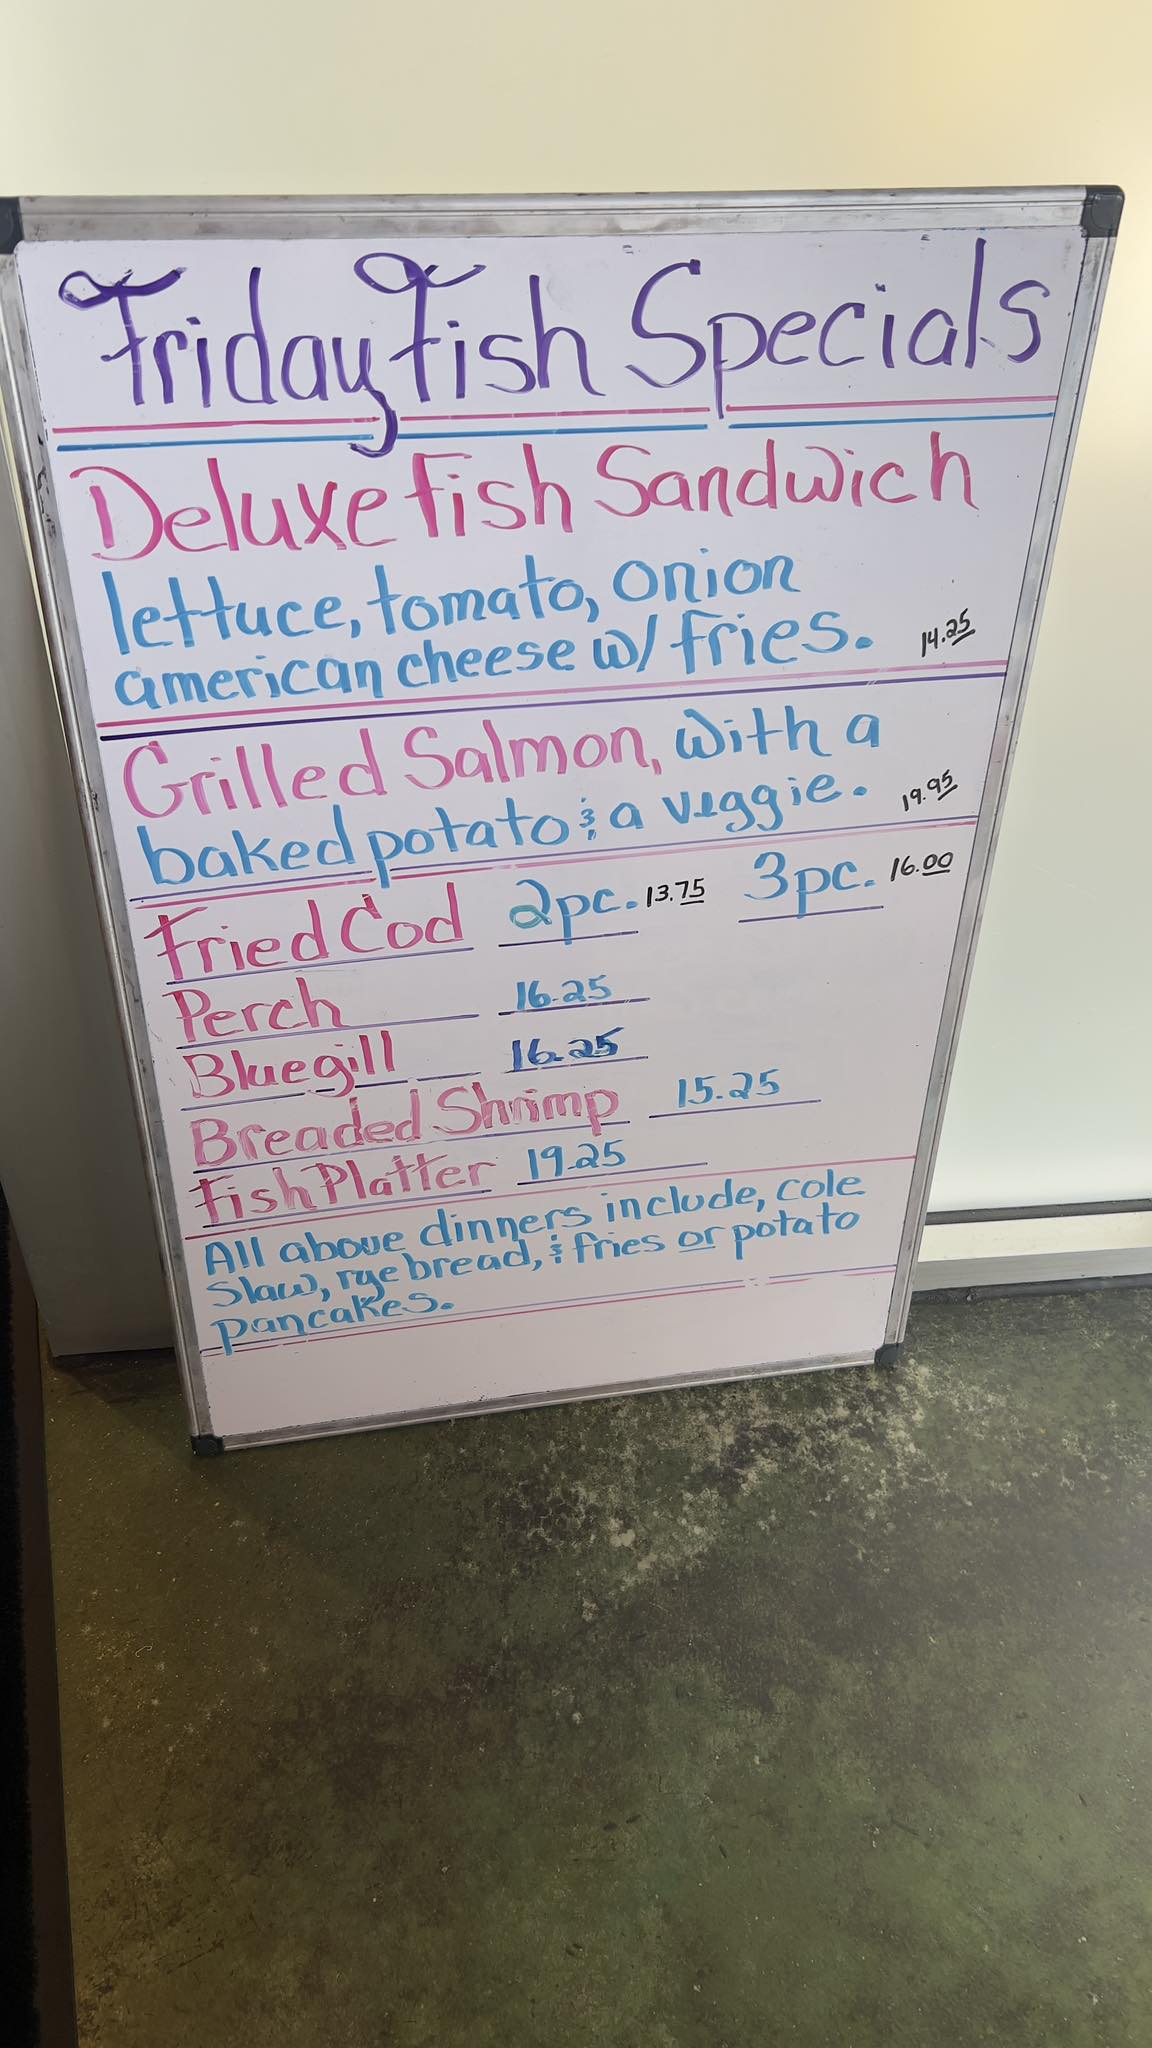 Friday Fish Specials
Deluxe Fish Sandwich
lettuce, tomato, onion
american cheese w/ fries. 14.25
Grilled Salmon, with a
baked potato & a veggie. 19.95
Fried Cod 2pc. 13.75 3pc. 16.00
Perch 16.25
Bluegill 16.25
Breaded Shrimp 15.25
Fish Platter 19.25
All above dinners include, cole
Slaw, rye bread, & fries or potato
pancakes.